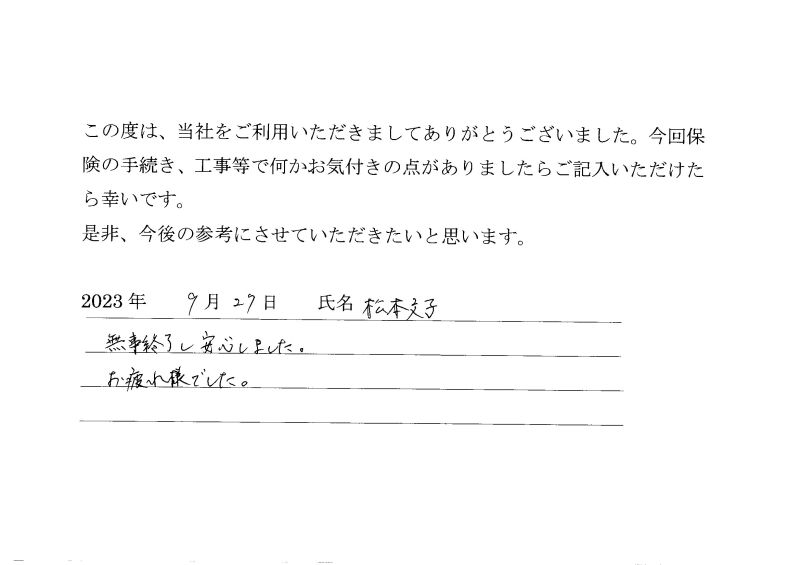 この度は、当社をご利用いただきましてありがとうございました。今回保
険の手続き、工事等で何かお気付きの点がありましたらご記入いただけた
ら幸いです。
是非、今後の参考にさせていただきたいと思います。
2023年 9月 27日 氏名 松本文子
無事終了し安心しました。
お疲れ様でした。